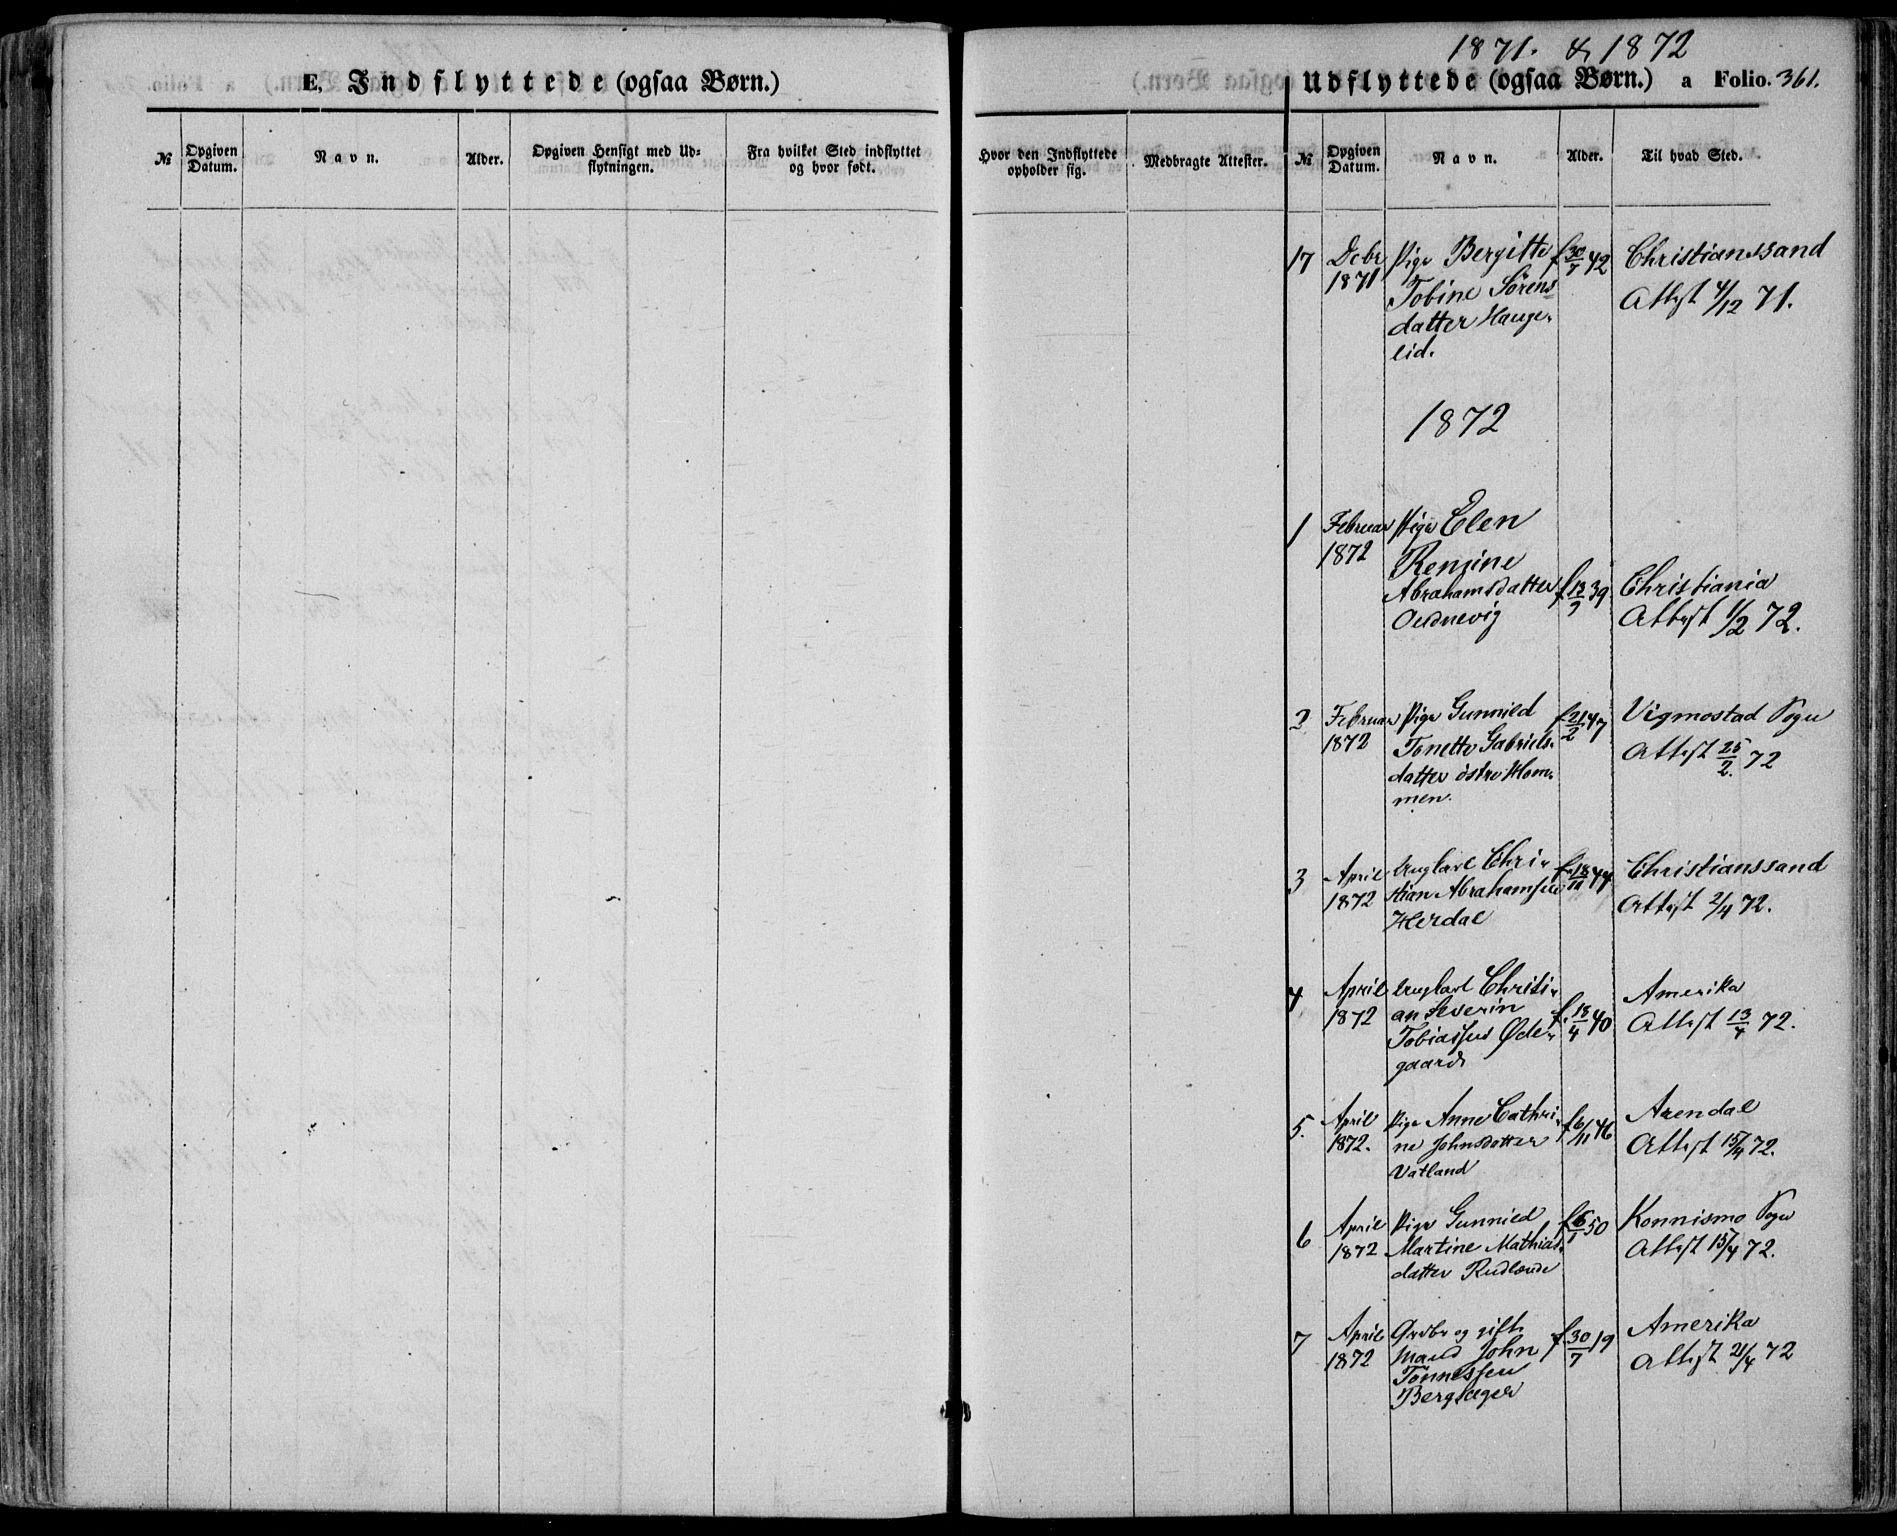 E. Indflyttede (ogsaa Børn.)
№
Opgiven Datum.
Navn.
Alder.
Opgiven Hensigt med Ud=
flytningen.
Fra hvilket Sted indflyttet
og hvor født.
1871. & 1872
Udflyttede (ogsaa Børn.) a Folio. 361.
Hvor den Indflyttede
opholder sig.
Medbragte Attester.
№
Opgiven Datum.
Navn.
Alder.
Til hvad Sted.
17 Debr Pige Bergitte f 30/7 42 Christianssand
1871 Tobine Sørens Attest 4/12 71.
datter Hauge-
lid.
1872
1 Februar Pige Elen
1872 Rensine
Abrahamsdatter f 13/7 39 Christiania
Oudnevig Attest 1/2 72.
2 Februar Pige Gunnild f 21/2 47 Vigmostad Sogn
1872 Tonette Gabriels- Attest 25/2. 72
datter østre Hom-
men.
3 April Ungkarl Chri- f 18/11 44 Christianssand
1872 stian Abrahamsen Attest 2/4 72.
Herdal
4 April Ungkarl Christi- Amerika
1872 an Severin f. 18/4 40 Attest 13/4 72.
Tobiassen Øde-
gaard
5. April Pige Anne Cathri- f 6/11 46 Arendal
1872. ne Johnsdatter Attest 15/4 72.
Vatland
6 April Pige Gunnild f 6/1 50 Konnismo Sogn
1872 Martine Mathias- Attest 15/4 72.
datter Rudlende
7 April Grdbr og gift f. 30/7 19 Amerika
1872 Mand John Attest 21/4 72
Tønnessen
Bergsager